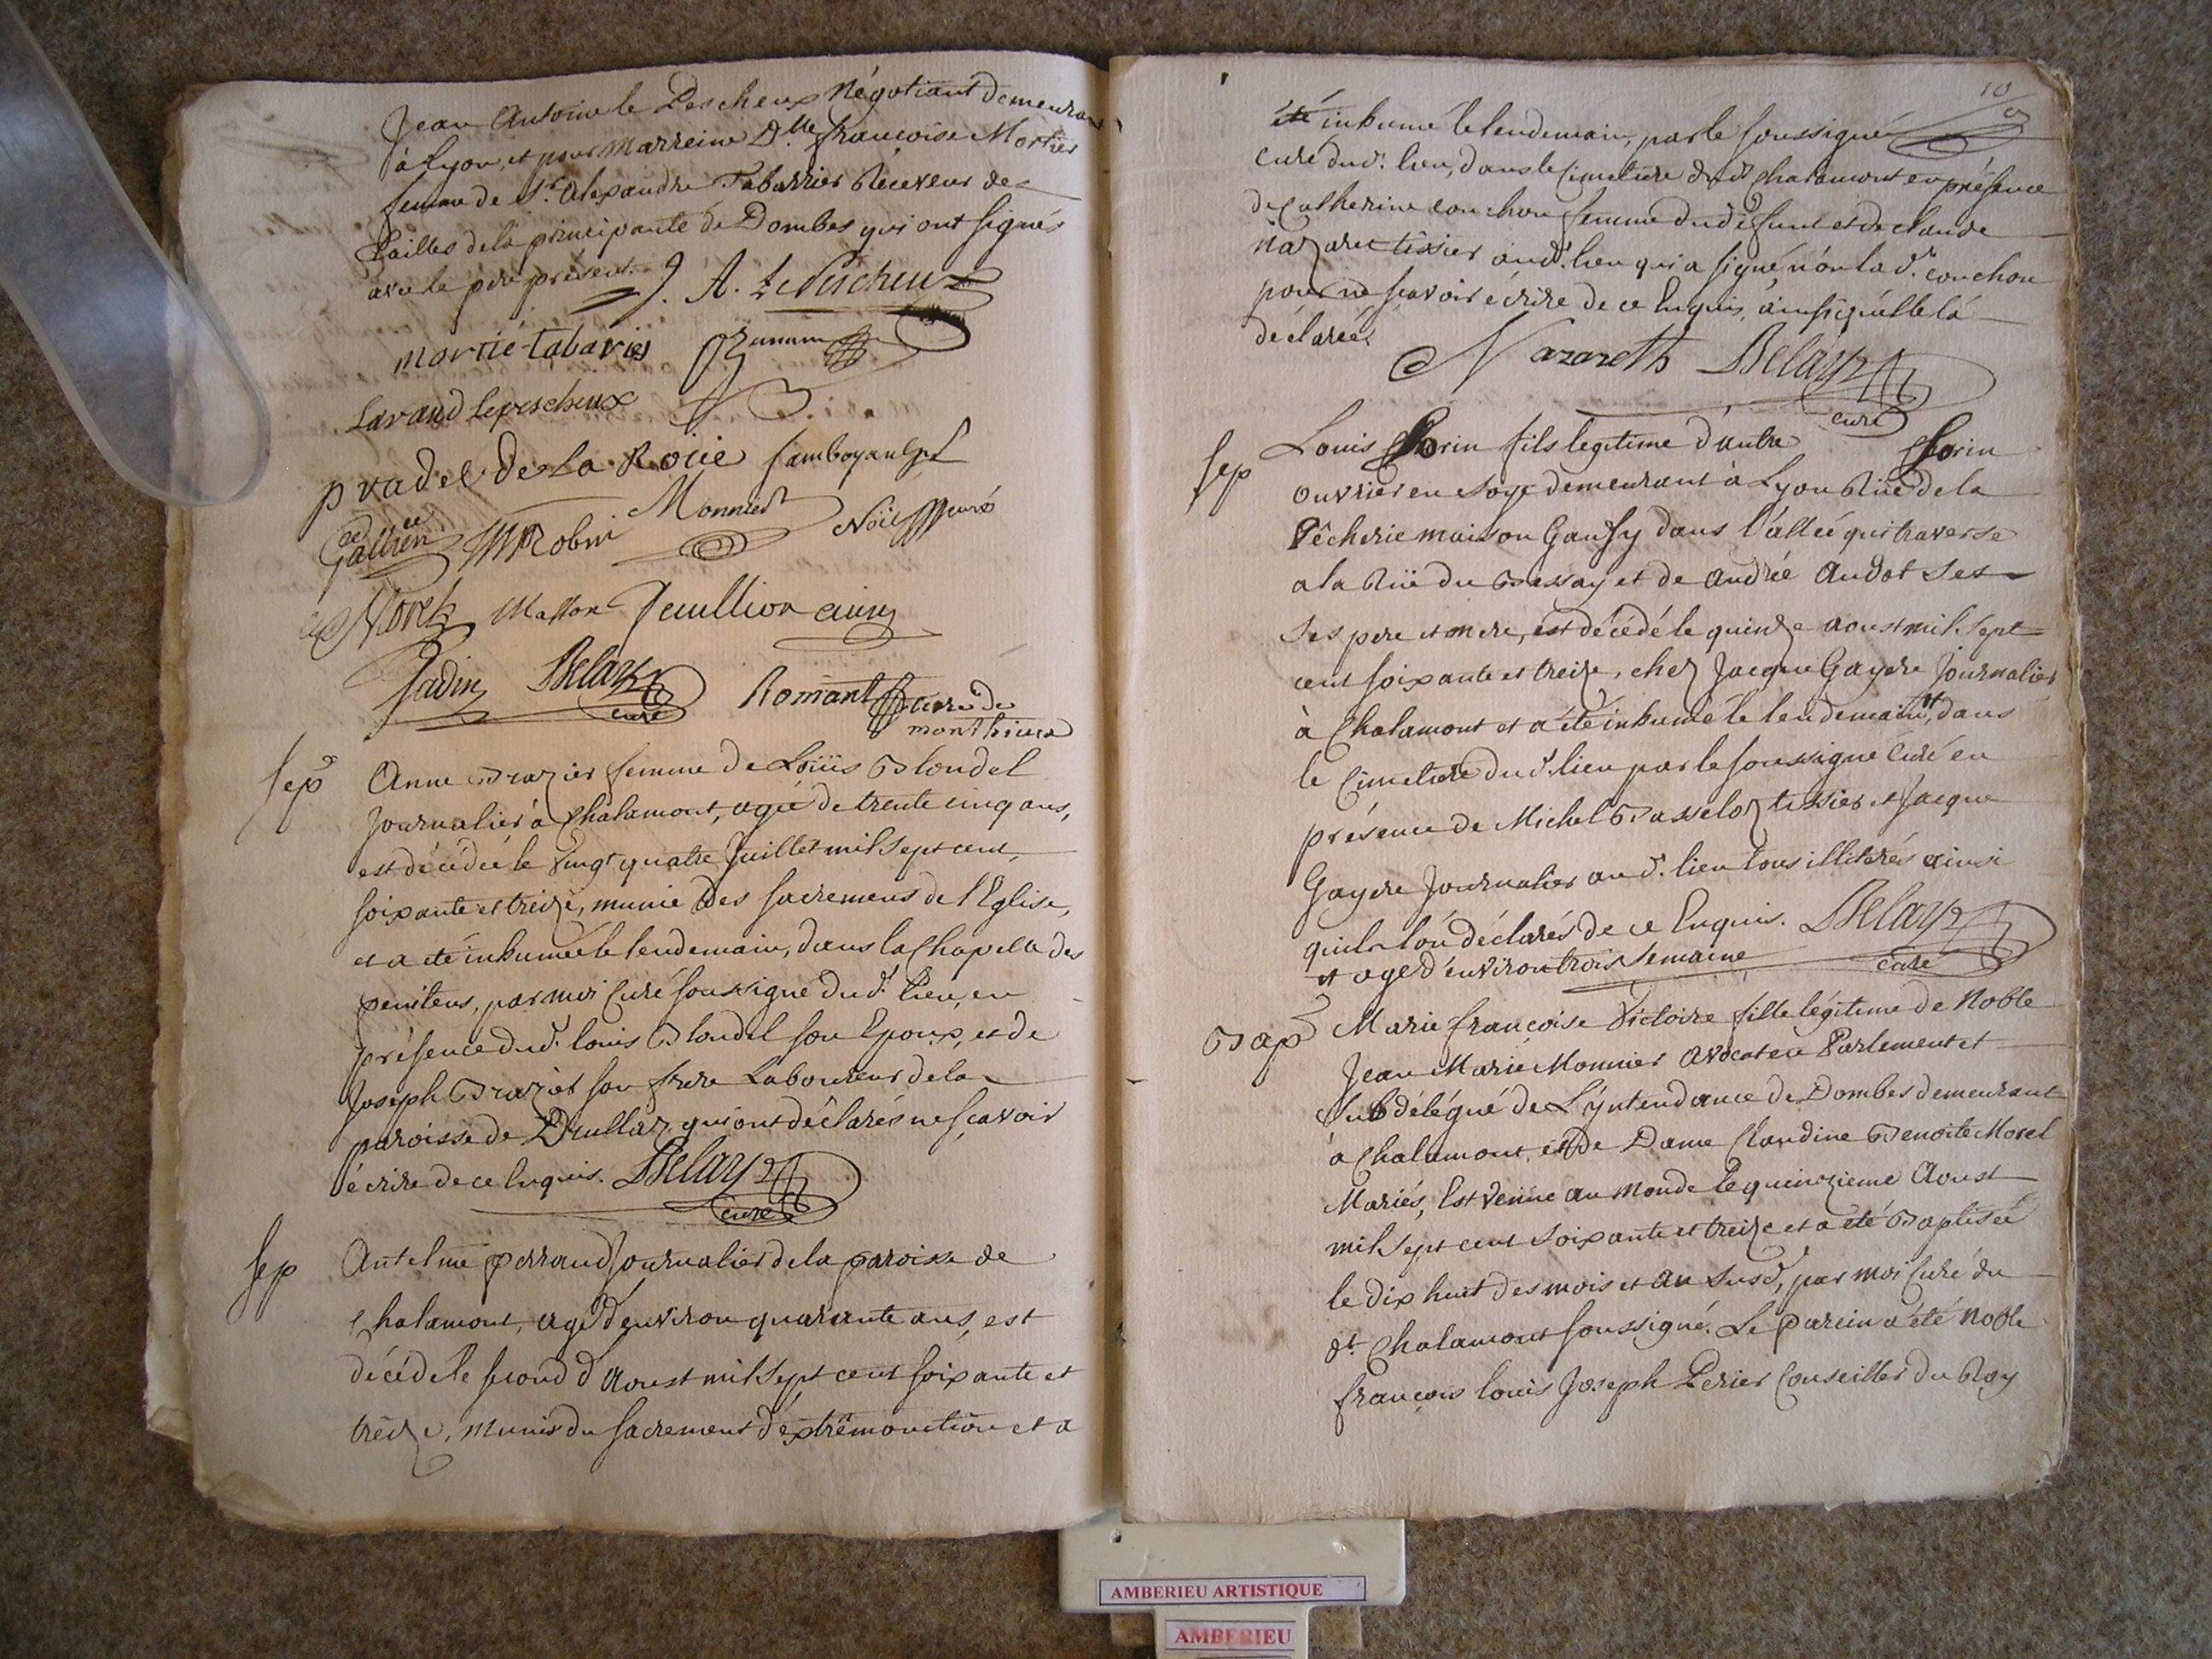 Jean Antoine le Pescheux Négotiant demeurant
à Lyon, et pour Marreine D.lle françoise Mortier
femme de S.r Alexandre Tabarrier Réceveur des
tailles de la principauté de Dombes qui ont signés
avec le pere présent. J. A. Le Pescheux
mortié-tabariés
Lavaud lepescheux
pradel De La Roüe
Monnier
Robin
Morel Masson Feuillion
Jadin Delay curé Romant curé de
monthieux
sep
Anne Brazier femme de Loüis Blondel
Journalier à Chalamont, agée de trente cinq ans,
est décédée le vingt quatre Juillet mil sept cent,
soixante et treize, munie des sacremens de l'Eglise,
et a été inhumée le lendemain, dans la Chapelle des
penitens, par moi Curé soussigné dud.t lieu, en
présence dud.t louis Blondel son Epoux, et de
Joseph Brazier son frere Laboureur de la
paroisse de Druillaz, qui ont déclarés ne sçavoir
écrire de ce Enquis. Delay
curé
sep
Antelme perraud Journalier de la paroisse de
Chalamont, agé d'environ quarante ans, est
décédé le second d'Aoust mil sept cent soixante et
treize, munis du sacrement d'extrêmonction et a
10
9
été inhumé le lendemain, par le soussigné
curé dud.t lieu, dans le Cimetiere dud.t Chalamont en présence
de Catherine couchou femme du défunt et de claude
nazaret tixier aud.t lieu qui a signé n'on la d.te couchou
pour ne sçavoir écrire de ce Enquis, ainsi qu'elle l'a
déclarée
Nazareth Delay
curé
sep
Louis Florin fils legitime d'autre Florin
ouvrier en soye demeurant à Lyon Rüe de la
Pêcherie maison Gausy dans l'allée qui traverse
a la Rüe du Bessay et de Andrée Audot ses
ses pere et mere, est décédé le quinze aoust mil sept
cent soixante et treize, chez Jacque Gayere Journalier
à Chalamont et a été inhumé le lendemain, dans
le Cimetiere dud.t lieu par le soussigné Curé en
présence de Michel Basseloz tissier et Jacque
Gayere Journalier aud.t lieu tous illiterés ainsi
quils l'on déclarés de ce Enquis. Delay
et agé d'environ trois semaine curé
Bap
Marie françoise Victoire fille légitime de Noble
Jean Marie Monnier Avocat en Parlement et
Subdélégué de L'yntendance de Dombes demeurant
à Chalamont, et de Dame Claudine Benoite Morel
Mariés, Est venüe au monde le quinzieme Aoust
mil sept cent soixante et treize et a été Baptisée
le dix huit des mois et an susd.t, par moi Curé du
d.t Chalamont soussigné. Le parein a été Noble
françois louis Joseph Perier Conseiller du Roy
AMBERIEU ARTISTIQUE
AMBERIEU